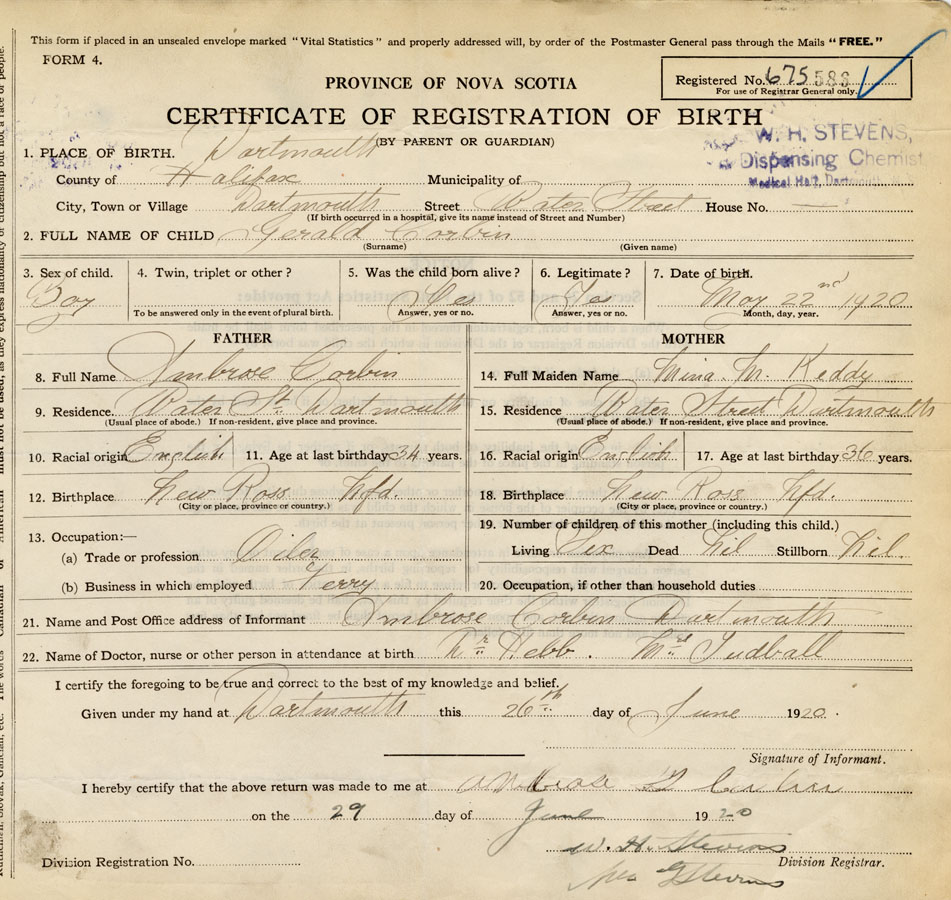 This form if placed in an unsealed envelope marked "Vital Statistics" and properly addressed will, by order of the Postmaster General pass through the Mails "FREE."
FORM 4.
PROVINCE OF NOVA SCOTIA
Registered No. 675588
For use of Registrar General only.
CERTIFICATE OF REGISTRATION OF BIRTH
(BY PARENT OR GUARDIAN)
W. H. STEVENS,
Dispensing Chemist
Medical Hall, Dartmouth
1. PLACE OF BIRTH. Dartmouth
County of Halifax Municipality of
City, Town or Village Dartmouth Street Water Street House No. —
(If birth occurred in a hospital, give its name instead of Street and Number)
2. FULL NAME OF CHILD Gerald Corbin
(Surname) (Given name)
3. Sex of child. 4. Twin, triplet or other? 5. Was the child born alive? 6. Legitimate? 7. Date of birth.
Boy Yes Yes May 22nd 1920
To be answered only in the event of plural birth. Answer, yes or no. Answer, yes or no. Month, day, year.
FATHER MOTHER
8. Full Name Ambrose Corbin 14. Full Maiden Name Mina. M. Keddy
9. Residence. Water St. Dartmouth 15. Residence Water Street Dartmouth
(Usual place of abode.) If non-resident, give place and province. (Usual place of abode.) If non-resident, give place and province.
10. Racial origin English 11. Age at last birthday 34 years. 16. Racial origin English 17. Age at last birthday 36 years.
12. Birthplace New Ross Nfd. 18. Birthplace New Ross Nfd.
(City or place, province or country.) (City or place, province or country.)
19. Number of children of this mother (including this child.)
13. Occupation:—
(a) Trade or profession Oiler Living Six Dead Nil Stillborn Nil.
(b) Business in which employed Ferry 20. Occupation, if other than household duties
21. Name and Post Office address of Informant Ambrose Corbin Dartmouth
22. Name of Doctor, nurse or other person in attendance at birth Dr Hebb. Mrs Tudball
I certify the foregoing to be true and correct to the best of my knowledge and belief.
Given under my hand at Dartmouth this 26th day of June 1920.
Signature of Informant.
I hereby certify that the above return was made to me at
on the 29 day of June 1920
W. H. Stevens
Division Registration No. Division Registrar.
Stevens